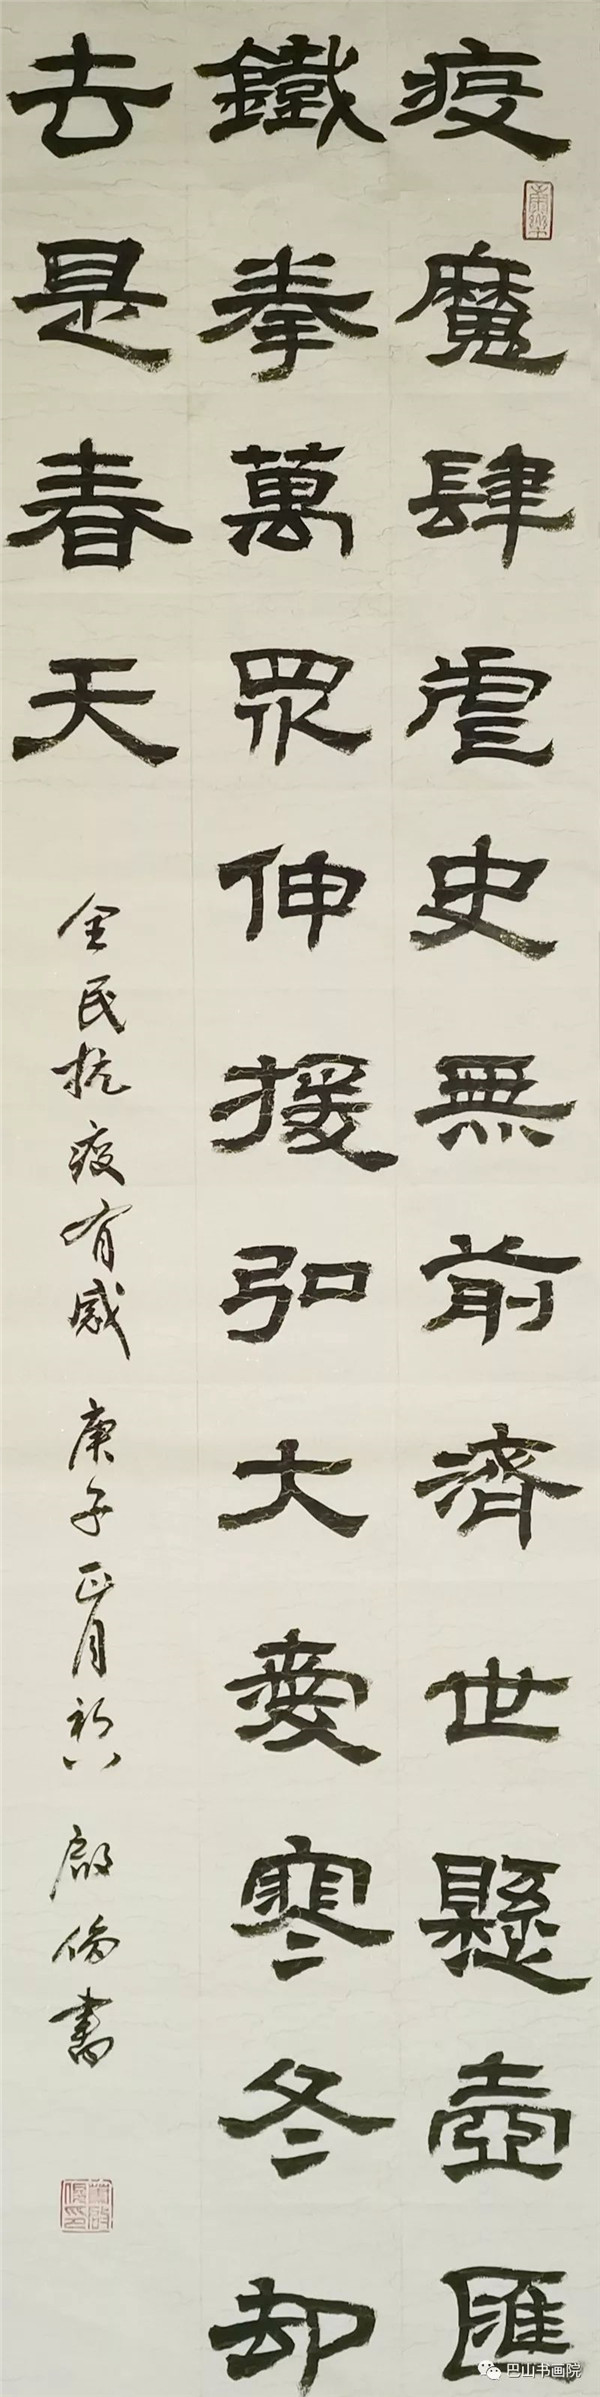 疫魔肆虐史無前濟世懸壺匯
鐵拳萬眾伸援弘大愛寒冬却
去是春天
全民抗疫有感 庚子正月初八 啟倫書
巴山书画院